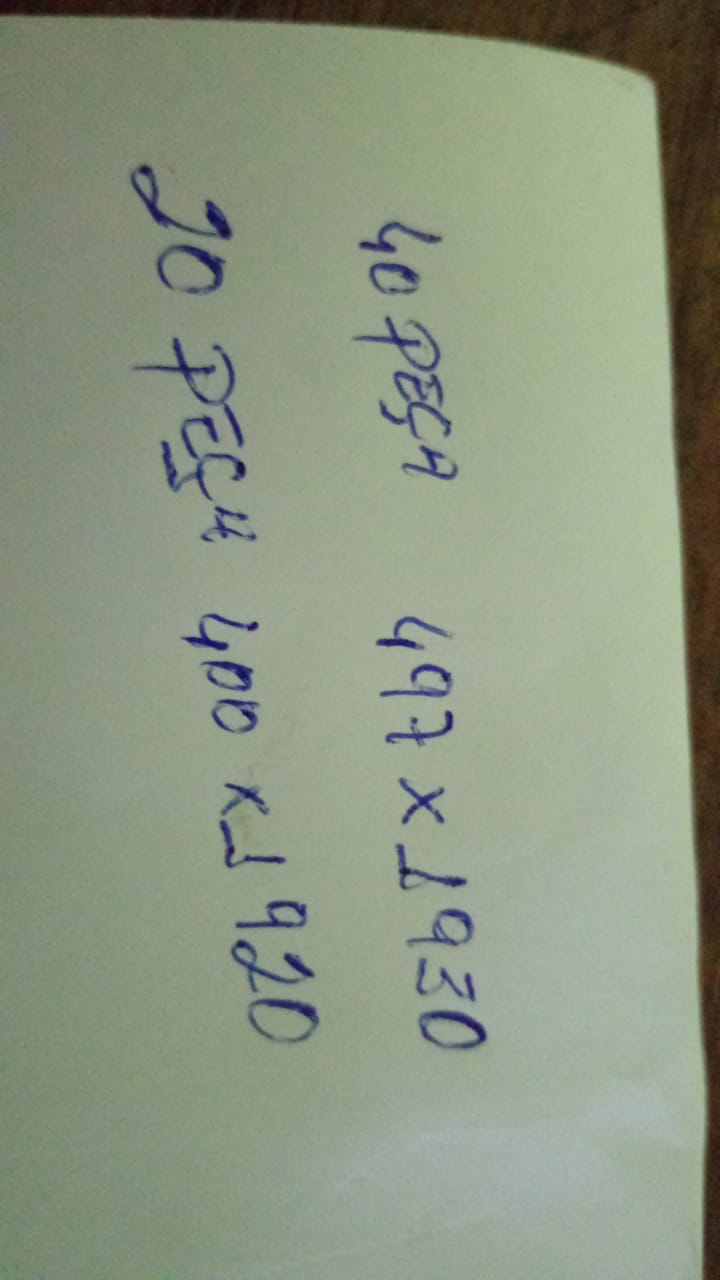 40 PEÇA 497 x 1930
20 PEÇA 400 x 1920